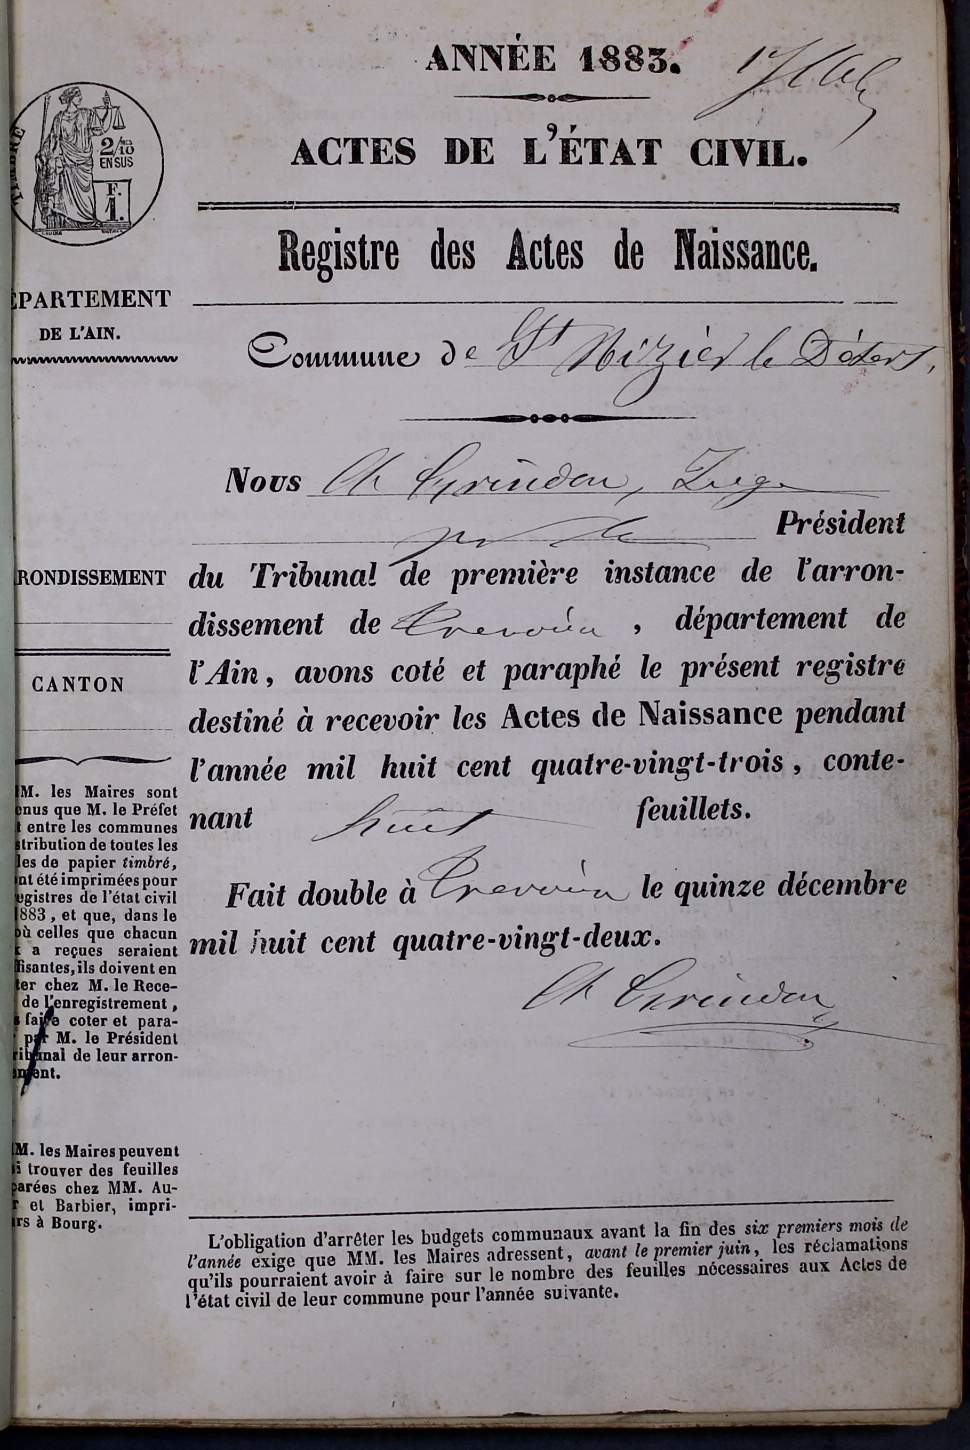 ANNÉE 1883.
ACTES DE L'ÉTAT CIVIL.
TIMBRE
2/10
EN SUS
F.
1.
Registre des Actes de Naissance.
ÉPARTEMENT
DE L'AIN.
Commune de St Nizier le Désert,
Nous Ch Girindon, Juge
Président
RONDISSEMENT
du Tribunal de première instance de l'arron-
dissement de Trevoux, département de
l'Ain, avons coté et paraphé le présent registre
CANTON
destiné à recevoir les Actes de Naissance pendant
l'année mil huit cent quatre-vingt-trois, conte-
nant huit feuillets.
Fait double à Trevoux le quinze décembre
mil huit cent quatre-vingt-deux.
Ch Girindon
M. les Maires sont
enus que M. le Préfet
t entre les communes
stribution de toutes les
les de papier timbré,
nt été imprimées pour
egistres de l'état civil
1883, et que, dans le
où celles que chacun
a reçues seraient
fisantes, ils doivent en
ter chez M. le Rece-
de l'enregistrement,
s faire coter et para-
par M. le Président
ribunal de leur arron-
ement.
M. les Maires peuvent
i trouver des feuilles
parées chez MM. Au-
r et Barbier, impri-
rs à Bourg.
L'obligation d'arrêter les budgets communaux avant la fin des six premiers mois de
l'année exige que MM. les Maires adressent, avant le premier juin, les réclamations
qu'ils pourraient avoir à faire sur le nombre des feuilles nécessaires aux Actes de
l'état civil de leur commune pour l'année suivante.